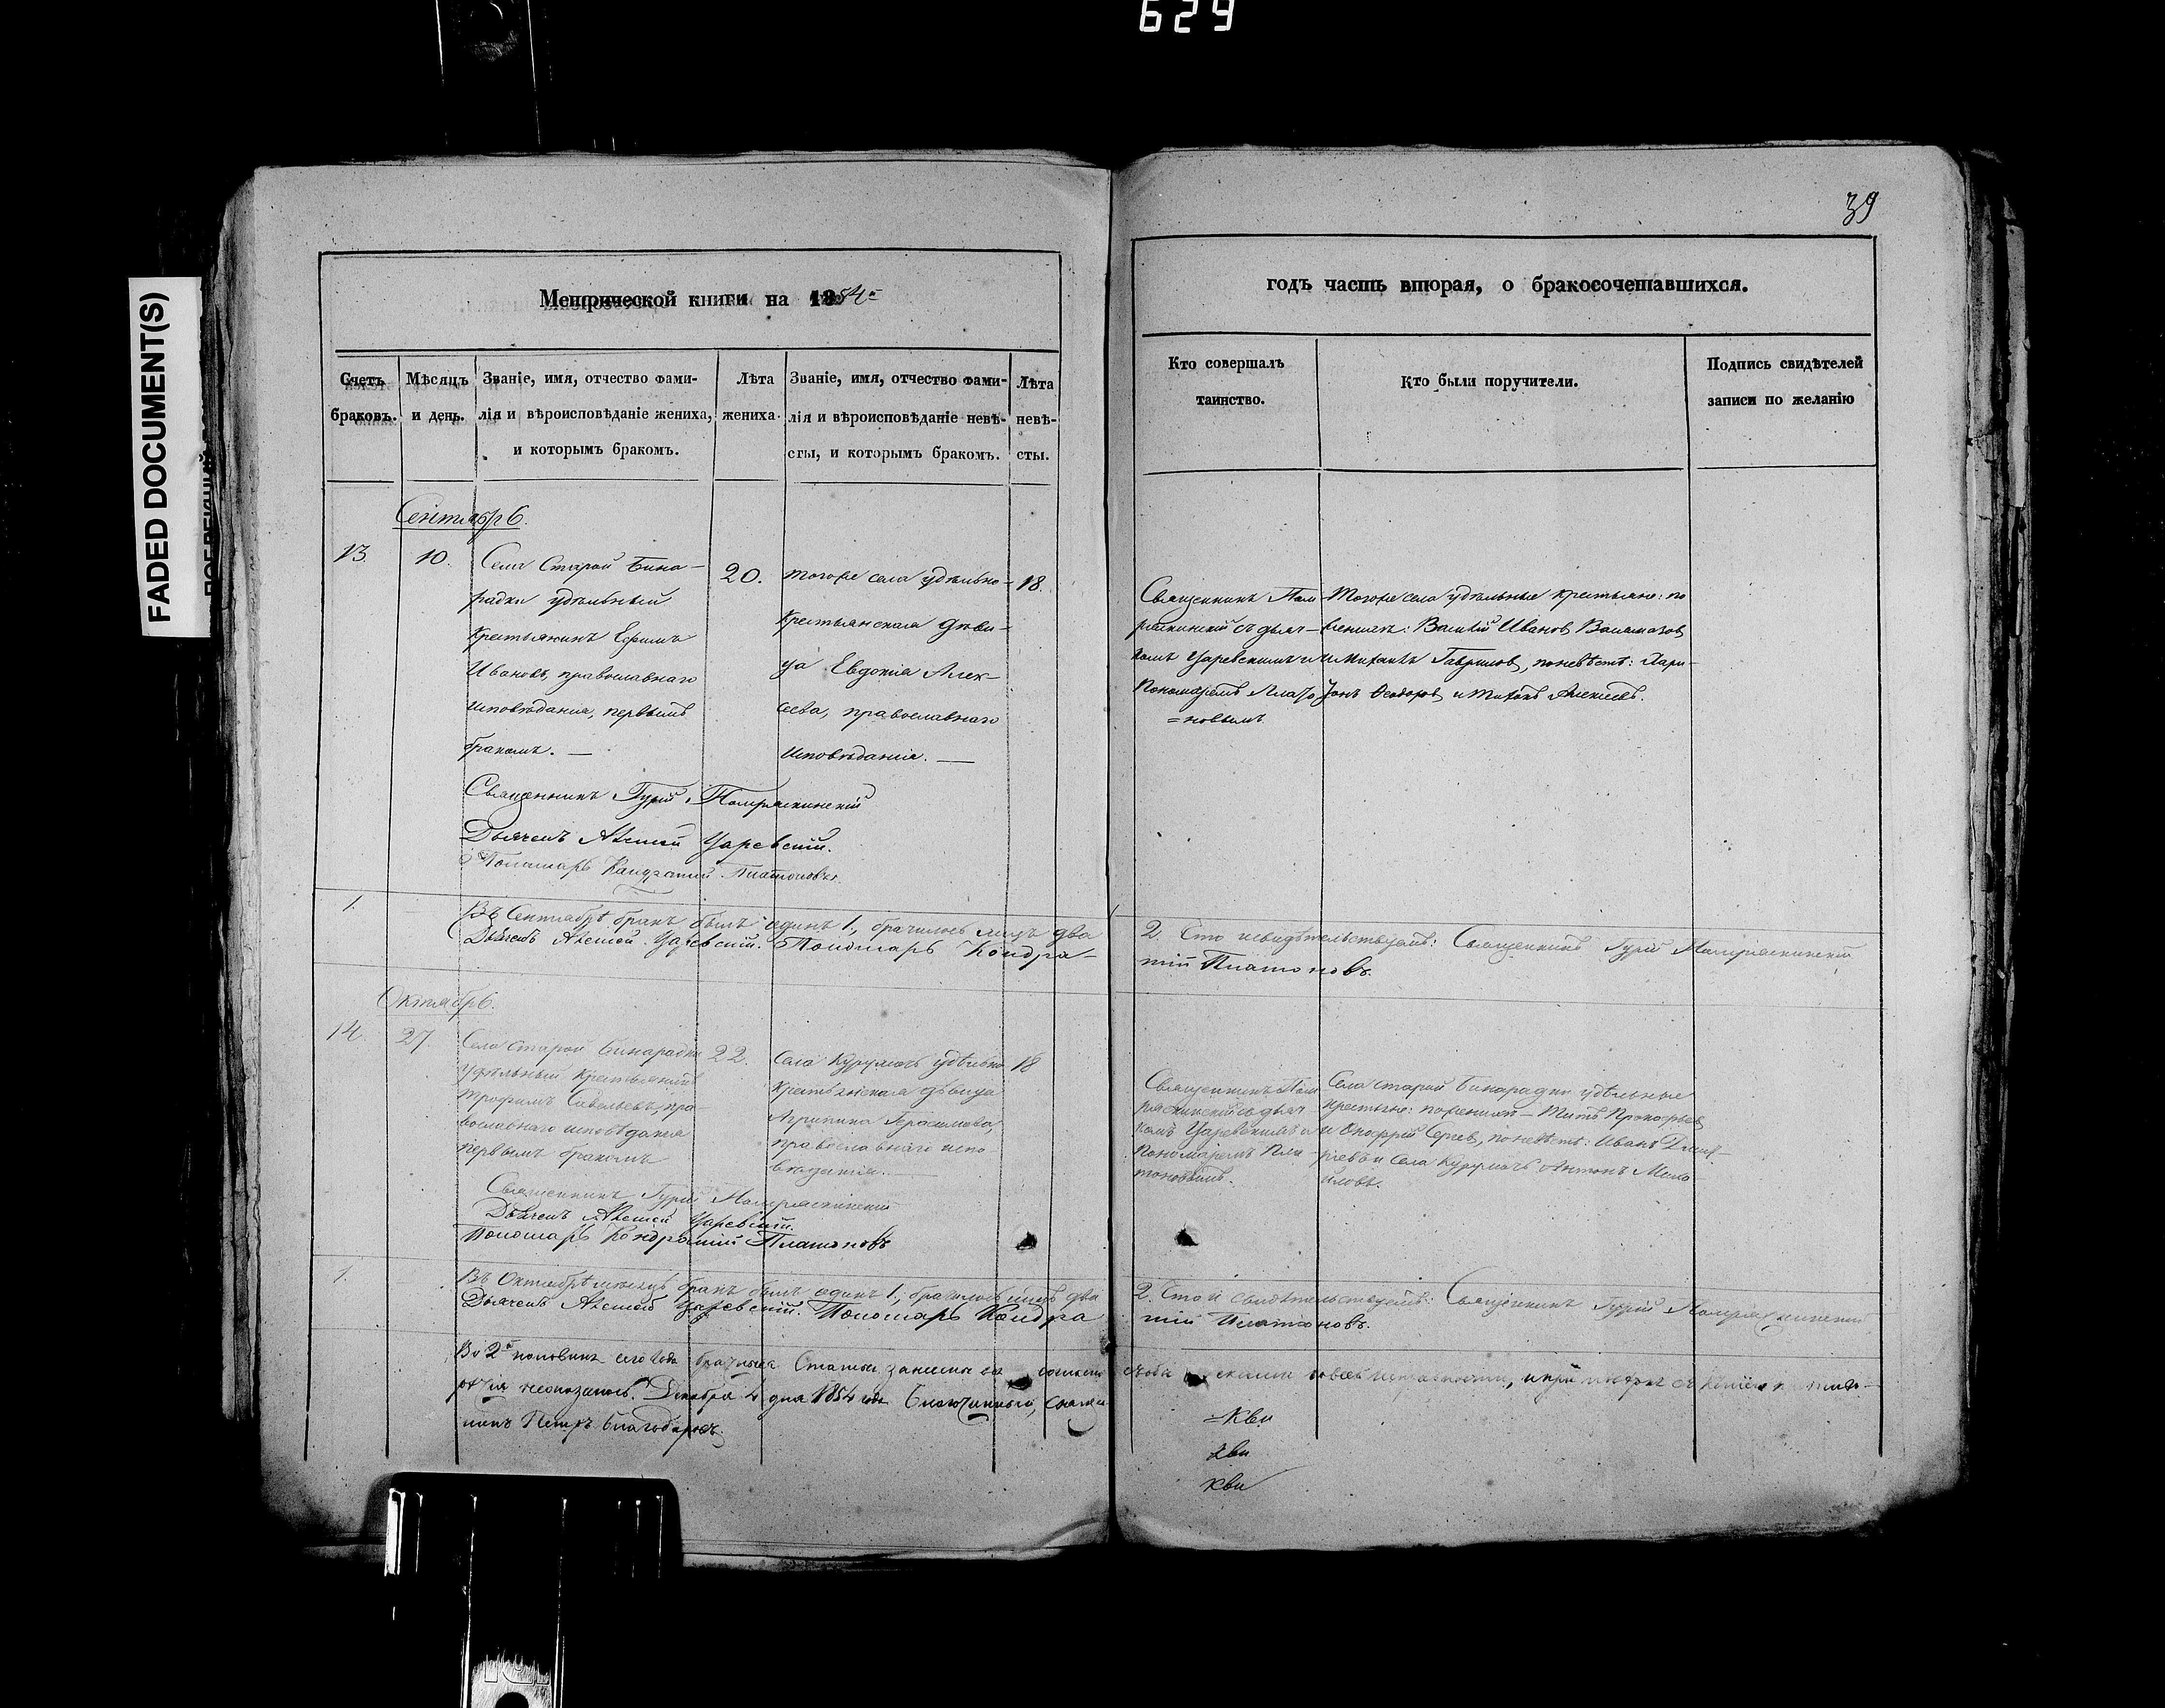 629
FADED DOCUMENT(S)
39
Метрической книги на 1854й
годъ часть вторая, о бракосочетавшихся.
Счетъ браковъ.
Мѣсяцъ и день.
Званіе, имя, отчество фами-
лія и вѣроисповѣданіе жениха,
и которымъ бракомъ.
Лѣта жениха.
Званіе, имя, отчество фами-
лія и вѣроисповѣданіе невѣ-
сты, и которымъ бракомъ.
Лѣта невѣ-
сты.
Кто совершалъ
таинство.
Кто были поручители.
Подпись свидѣтелей
записи по желанію
Сентябрь.
13.
10.
Села Старой Бина-
радки удѣльный
крестьянинъ Ефимъ
Ивановъ, православнаго
исповѣданія, первымъ
бракомъ. —
20.
тогоже села удѣльно-
крестьянская дѣви-
ца Евдокія Алек-
сеева, православнаго
исповѣданія. —
18.
Священникъ Пом-
ряскинскій съ дьяч-
комъ Царевскимъ и
Пономаремъ Плато
=новымъ
Тогоже села удѣльные крестьяне: по
женихѣ: Ивановъ
и Гавриловъ, по невѣстѣ: Лари-
онъ Ѳеодоровъ и Алексѣевъ.
Священникъ Гурій Помряскинскій
Дьячекъ Алексѣй Царевскій.
Пономарь Кондратій Платоновъ.
1.
Въ Сентябрѣ бракъ былъ одинъ 1, брачилось лицъ два
2. Сто и свидѣтельствуемъ: Священникъ Гурій Помряскинскій
Дьячекъ Алексѣй Царевскій. Пономарь Кондра-
тій Платоновъ.
Октябрь.
14.
27.
Села Старой Бинарадки
удѣльный крестьянинъ
Трофимъ Савельевъ, пра-
вославнаго исповѣданія
первымъ бракомъ
22.
Села Курумочъ удѣльно
крестьянская дѣвица
Агрипина Герасимова,
православнаго испо-
вѣданія. —
18
Священникъ Пом
ряскинскій съ дьяч-
комъ Царевскимъ и
Пономаремъ Пла-
тоновымъ.
Села старой Бинарадки удѣльные
крестьяне: по женихѣ — Титъ Прокофьев
и Онофрій Сергѣев, по невѣстѣ: Иванъ Дмит-
ріевъ и села Курумочъ Антонъ Миха
йловъ.
Священникъ Гурій Помряскинскій
Дьячекъ Алексѣй Царевскій.
Пономарь Кондратій Платоновъ
1.
Въ Октябрѣ месяцѣ бракъ былъ одинъ 1, брачилось лицъ два
2. Сто и свидѣтельствуемъ: Священникъ Гурій Помряскинскій
Дьячекъ Алексѣй Царевскій. Пономарь Кондра
тій Платоновъ.
Во 2й половинѣ сего года брачныя Статьи
Декабря 4 дня 1854 года Благочинный, Священ
никъ Петръ Благодаровъ.
=кви
кви
кви